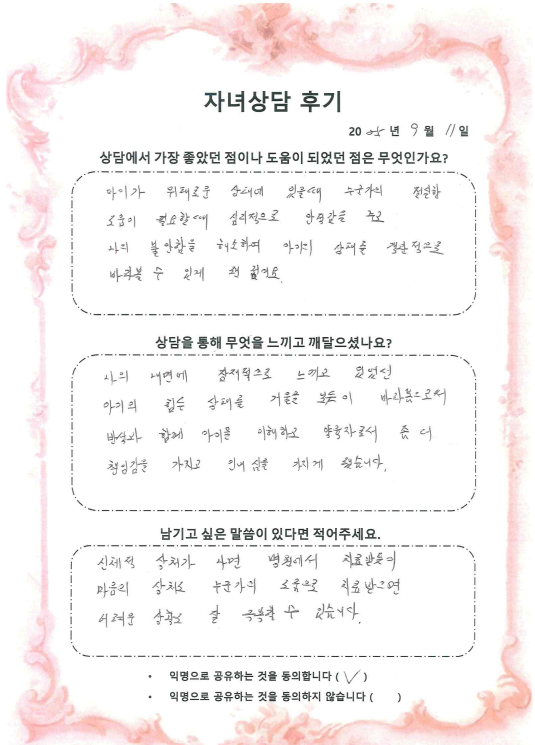 자녀상담 후기
20 25 년 9 월 11 일
상담에서 가장 좋았던 점이나 도움이 되었던 점은 무엇인가요?
아이가 위태로운 상태에 있을때 누군가의 절실한
도움이 필요할 때 심리적으로 안정감을 주고
나의 불안함을 해소하며 아기의 상태를 객관적으로
바라볼 수 있게 해 줬어요.
상담을 통해 무엇을 느끼고 깨달으셨나요?
나의 내면에 잠재적으로 느끼고 있었던
아기의 힘든 상태를 거울을 보듯이 바라봄으로써
반성과 함께 아이를 이해하고 양육자로서 좀 더
책임감을 가지고 인내심을 가지게 됐습니다.
남기고 싶은 말씀이 있다면 적어주세요.
신체적 상처가 나면 병원에서 치료받듯이
마음의 상처도 누군가의 도움으로 치료받으면
어려운 상황도 잘 극복할 수 있습니다.
• 익명으로 공유하는 것을 동의합니다 ( ✓ )
• 익명으로 공유하는 것을 동의하지 않습니다 ( )